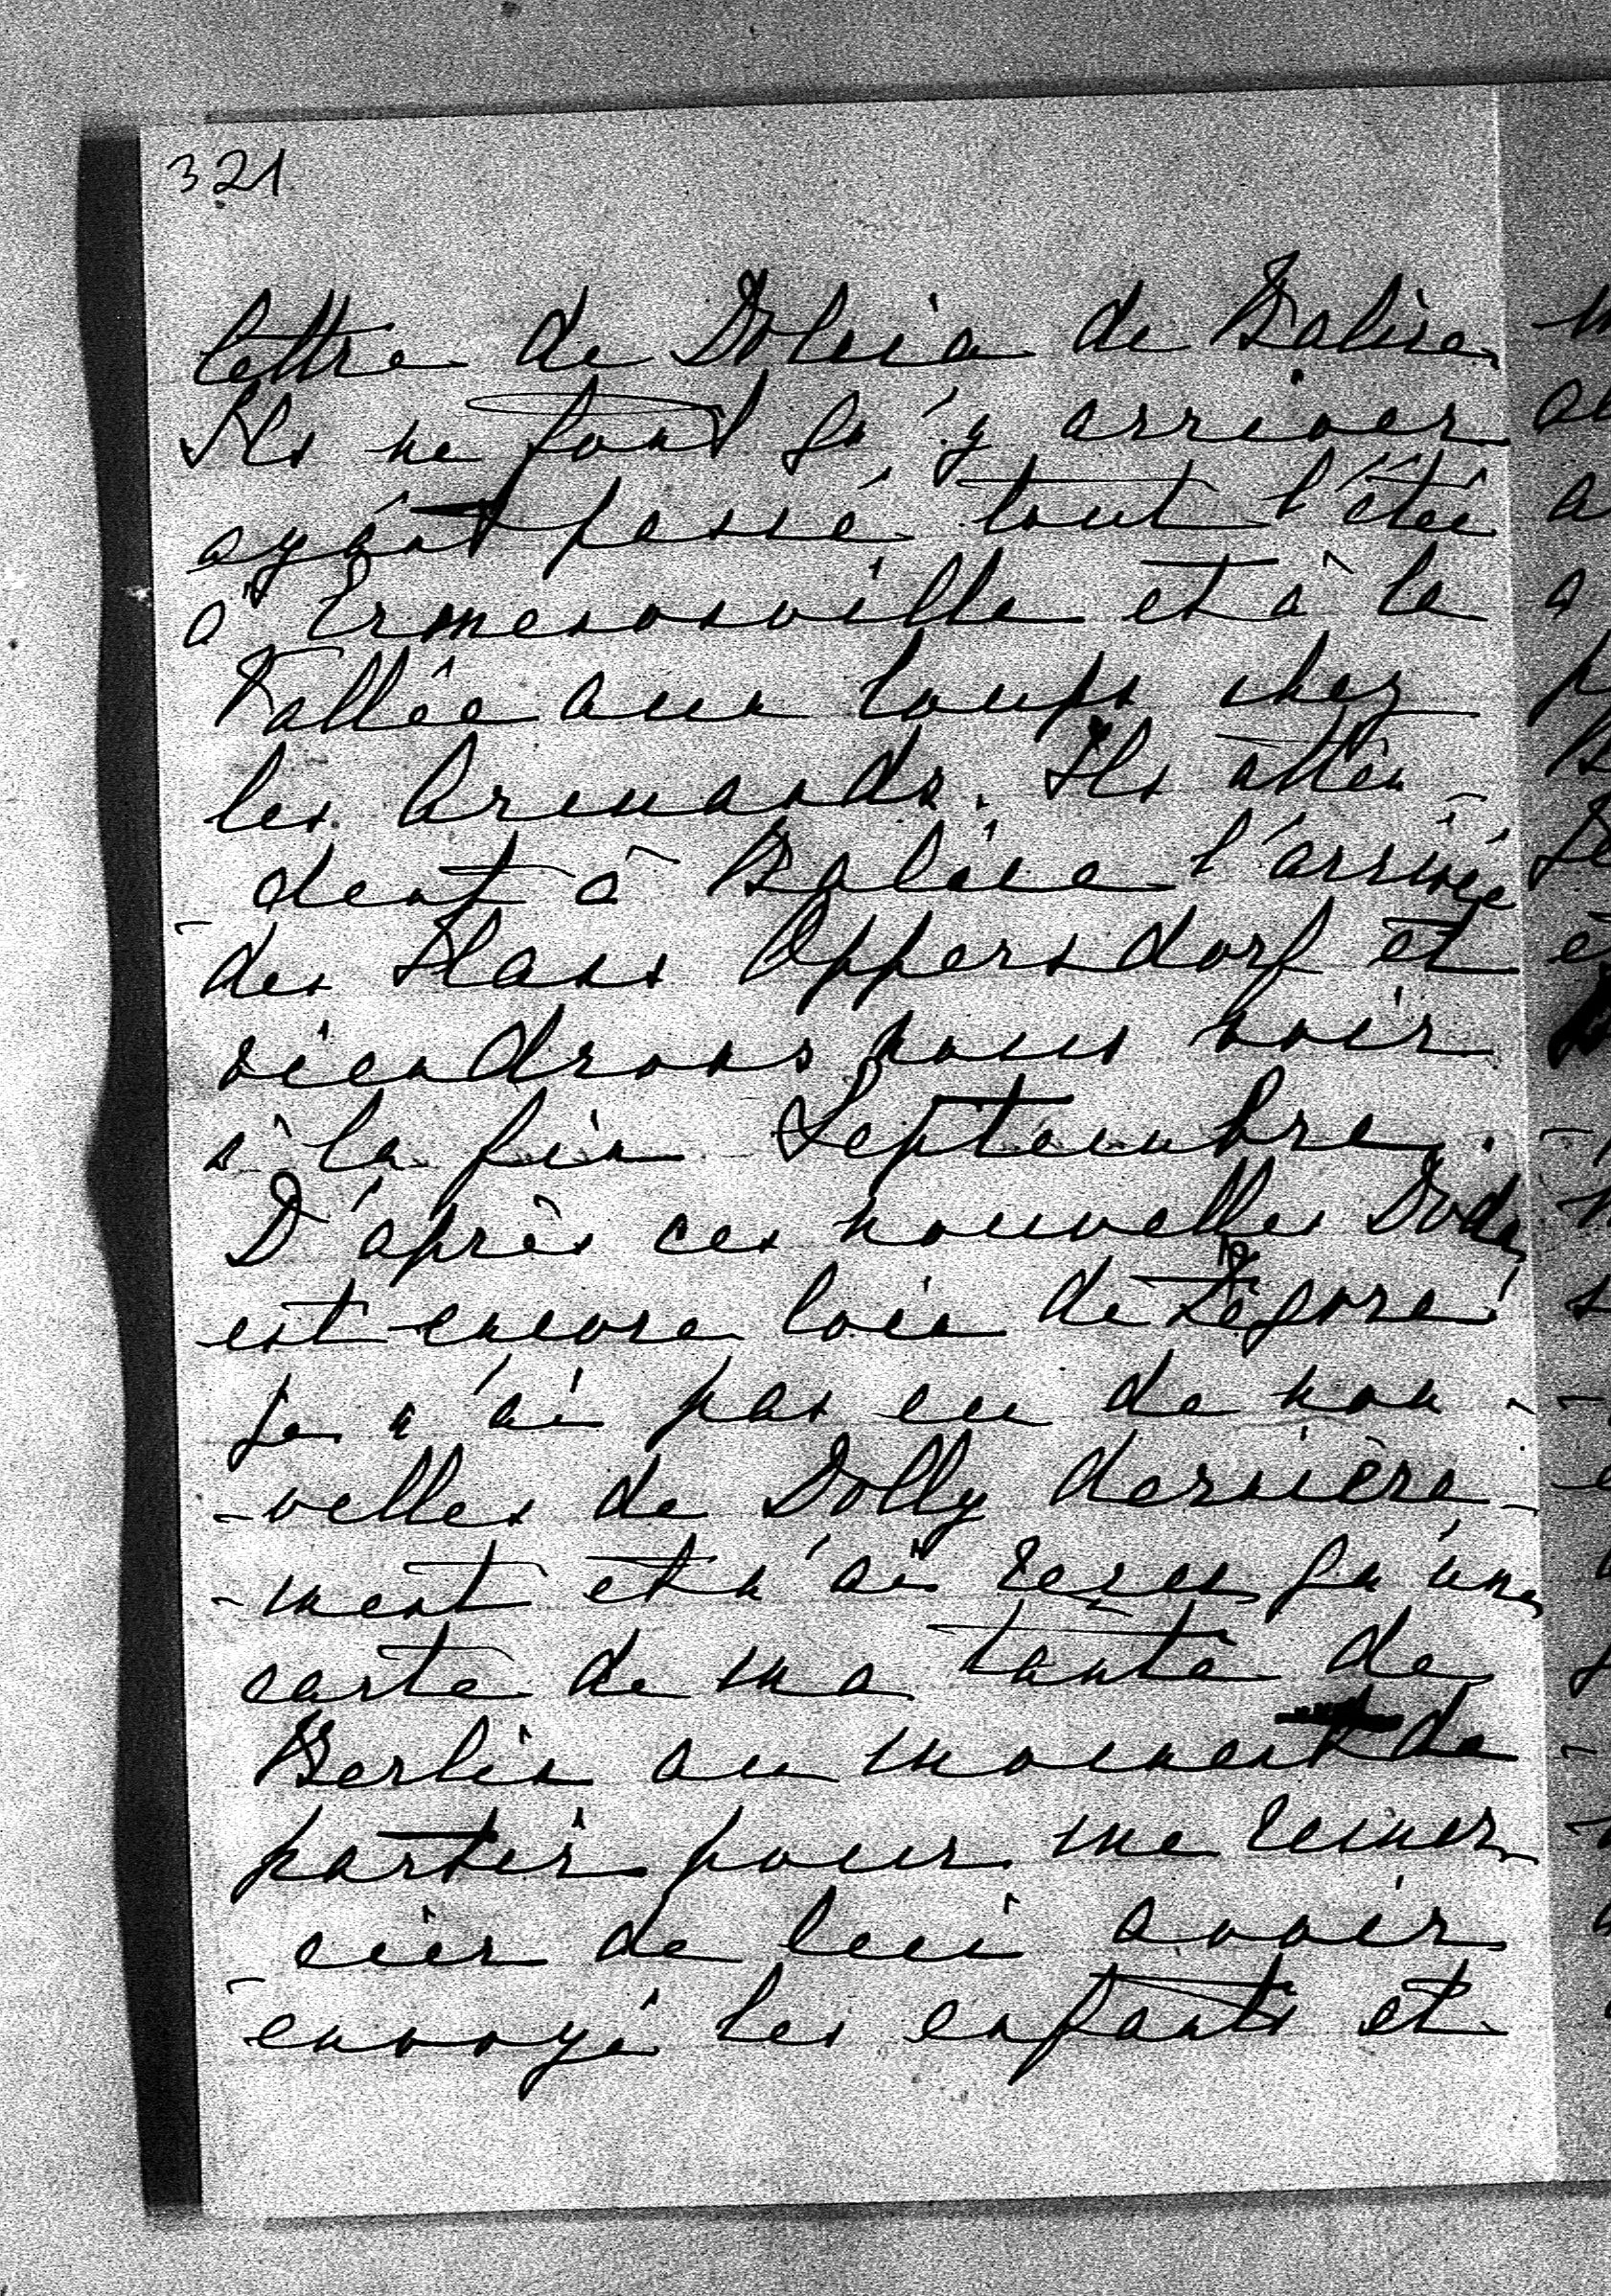 321
lettre de Dolcia de Balice.
Ils ne font qu'y arriver
ayant passé tout l'été
à Ermenonville et à la
Vallée aux loups chez
les Armands. Ils atten-
-dent à Balice l'arrivée
des Hans Oppersdorf et
viendrons nous voir
à la fin Septembre.
D'après ces nouvelles Dody
est encore loin de
je n'ai pas eu de nou-
-velles de Dolly dernière-
-ment et n'ai reçu qu'une
carte de ma tante de
Berlin au moment de
partir pour me remer-
-cier de lui avoir
envoyé les enfants et